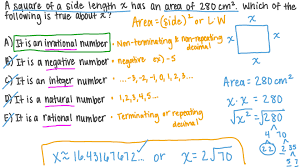 A square of side length x has an area of 280 cm². Which of the
following is true about x?
Area = (side)² or L·W
A) It is an irrational number • Non-terminating & non-repeating decimal
B) It is a negative number • negative ex) -5
C) It is an integer number • ...-3, -2, -1, 0, 1, 2, 3...
D) It is a natural number • 1, 2, 3, 4, 5...
E) It is a rational number • Terminating or repeating decimal
x
x
x
x
Area = 280 cm²
x · x = 280
√x² = √280
4 70
2 2 2 35
5 7
x ≈ 16.43167672... or x = 2√70